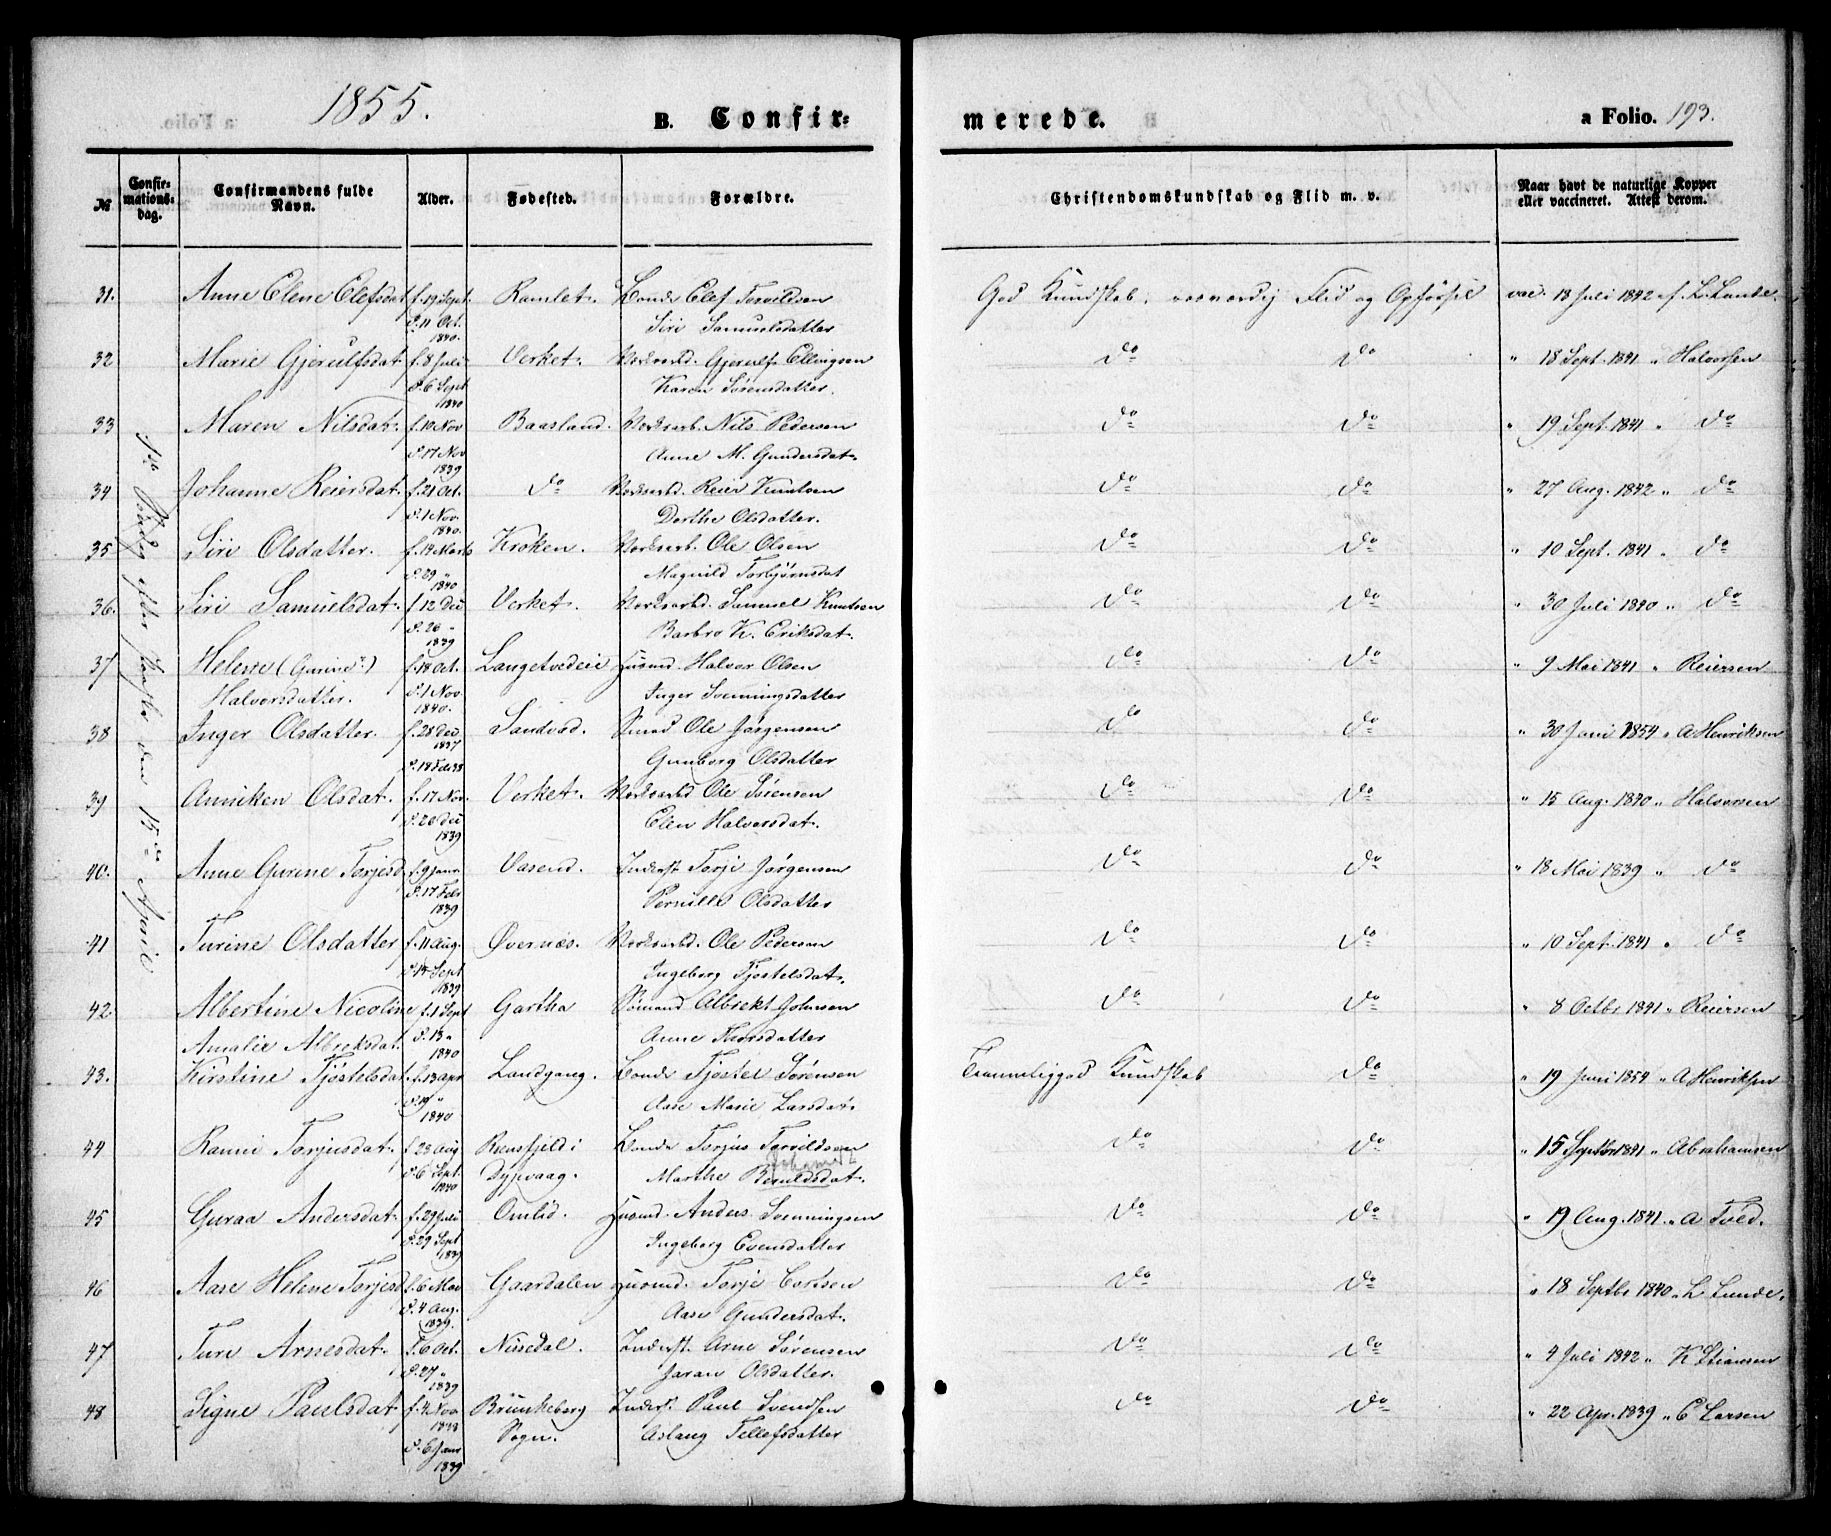 1855.
B. Confir=
merede.
a Folio. 193.
№
Confir=
mations=
dag.
Confirmandens fulde
Navn.
Alder.
Fødested.
Forældre.
Christendomskundskab og Flid m. v.
Naar havt de naturlige Kopper
eller vaccineret. Attest derom.
1ste Søndag efter Paaske den 15de April
31. Anne Elene Elefsdat f. 19 Sept. Ramlet. Bonde Elef Torvildsen God Kundskab, Flid og Opførsel vac. 18 Juli 1842 af L. Lunde.
d. 11 Oct. Siri Samuelsdatter
1840.
32 Marie Gjerulfsdat f. 8 Juli Verket. Verksarbd. Gjerulf Ellingsen do do " 18 Sept. 1841 " Halvorsen
d. 6 Sept Karen Sørensdatter.
1840
33 Maren Nilsdat. f. 10 Nov Baasland. Verksarb. Nils Pedersen do do " 19 Sept. 1841 " do
d. 17 Nov Anne M. Gundersdat.
1839
34 Johanne Reiersdat. f. 21 Oct. do Verksarbd. Reier Knutsen do do " 27 Aug. 1842 " do
d. 1 Nov. Dorthe Olsdatter.
1840.
35 Siri Olsdatter. f. 14 Marts Kroken. Verksarb. Ole Olsen do do " 10 Sept. 1841 " do
d. 29 " Magnild Torbjørnsdat
1840
36. Siri Samuelsdat. f. 12 Dec Verket. Verksarbd. Samuel Knutsen do do " 30 Juli 1840 " do
d. 26 " Barbro K. Eriksdat.
1839
37 Helene (Gurine?) f. 18 Oct. Langetvedeie Husmd. Halvor Olsen do do " 9 Mai 1841 " Reiersen
Halvorsdatter. d. 1 Nov. Inger Svenningsdatter
1840.
38 Inger Olsdatter. f. 28 Dec Sandvod. Smed Ole Jørgensen do do " 30 Juni 1854 " A Henriksen
1837
d. 18 Feb 38 Gunborg Olsdatter
39 Anniken Olsdat. f. 17 Nov. Verket. Verksarbd Ole Sørensen do do " 15 Aug. 1840 " Halvorsen
d. 26 Dec Elen Halvorsdat.
1839
40. Anne Gurine Torjesd f. 9 Janr. Vasend. Inderst Torje Jørgensen do do " 18 Mai 1839 " do
d. 17 Feb Pernille Olsdatter
1839
41 Turine Olsdatter f. 11 Aug. Øvernæs. Verksarbd. Ole Pedersen do do " 10 Sept. 1841 " do
d. 15 Sept Ingeborg Tjøstelsdat.
1839
42. Albertine Nicoline f. 1 Sept Gartha Sømand Albrekt Johnsen do do " 8 Octbr 1841 " Reiersen
Amalie Albreksdat. d. 13 " Anne Thorsdatter
1840
43. Kirstine Tjøstelsdat. f. 13 apr Landgang. Bonde Tjøstel Sørensen Temmeliggod Kundskab do " 19 Juni 1854 " A Henriksen
d. 19 " Aase Marie Larsdat.
1840
44 Ranni Torjusdat. f. 23 Aug Rensfjeld i Bonde Torjus Torvildsen do do " 15 Septbr 1841 " Abrahamsen
d. 6 Sept. Dypvaag. Marthe Beruldsdat.
1840
45 Guraa Andersdat. f. 29 Juli Omlid. Husmd. Anders Svenningsen do do " 19 Aug. 1841 " A Tved.
d. 29 Sept Ingeborg Evensdatter
1839
46 Aase Helene Torjesd f. 6 Mai Gaardalen Husmd. Torje do do " 18 Septbr 1840 " L Lunde.
d. 4 Aug. Aase Gundersdat.
1839.
47 Turi Arnesdat. f. 6 Oct. Nissedal. Inderst. Arne Sørensen do do " 4 Juli 1842 " K Stiansen
d. 27 " Jaran Olsdatter.
1839
48 Signe Paulsdat f. 4 Nov. Brunkeberg Inderst. Paul Svendsen do do " 22 Apr. 1839 " C Larsen
1838
d. 6 Janr Sogn. Aslaug Tellefsdatter
1839